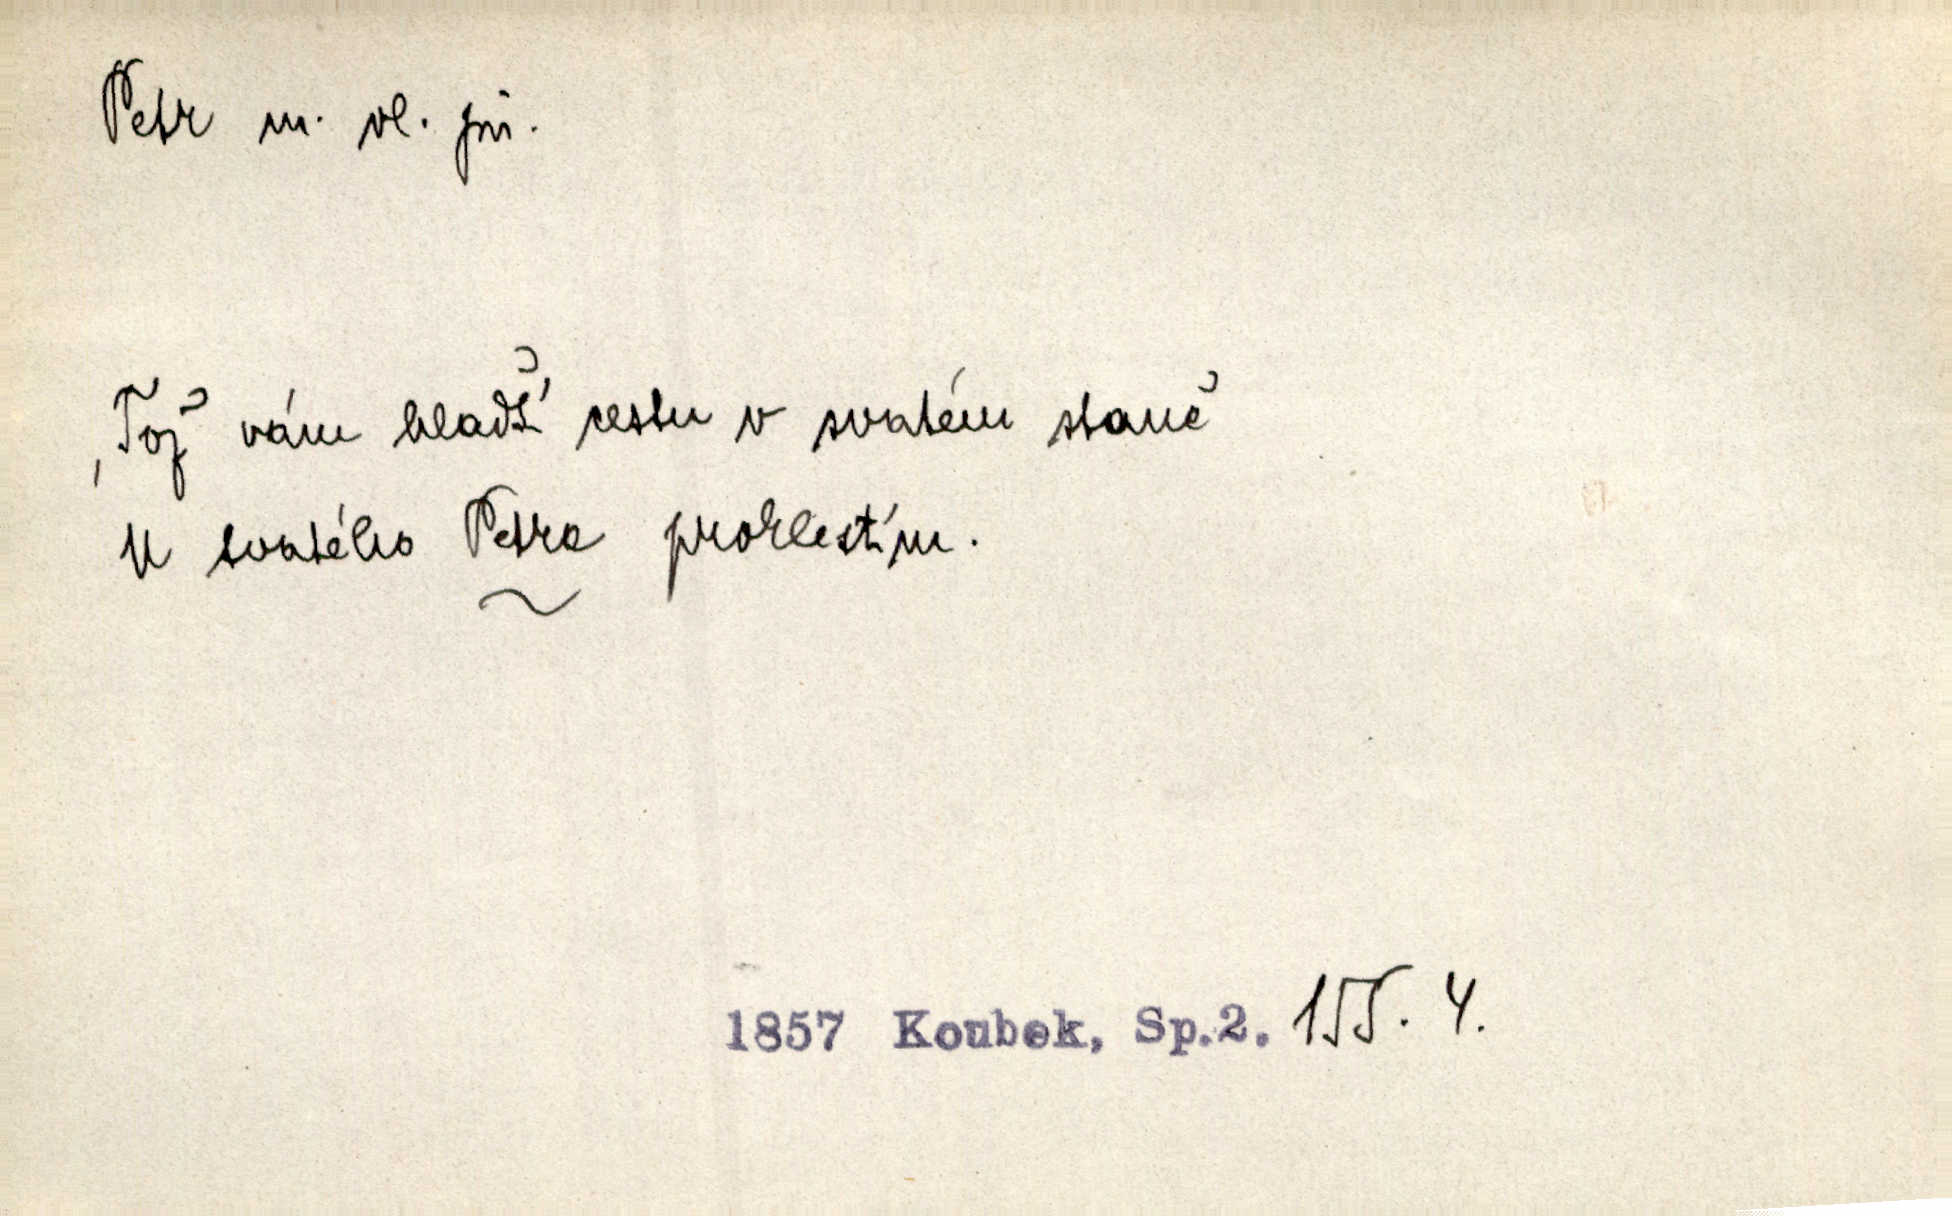 Petr m. vl. jm.
„Tož vám hladší cestu v svatém staně
U svatého Petra proklestím.
1857 Koubek, Sp.2. 155. 4.